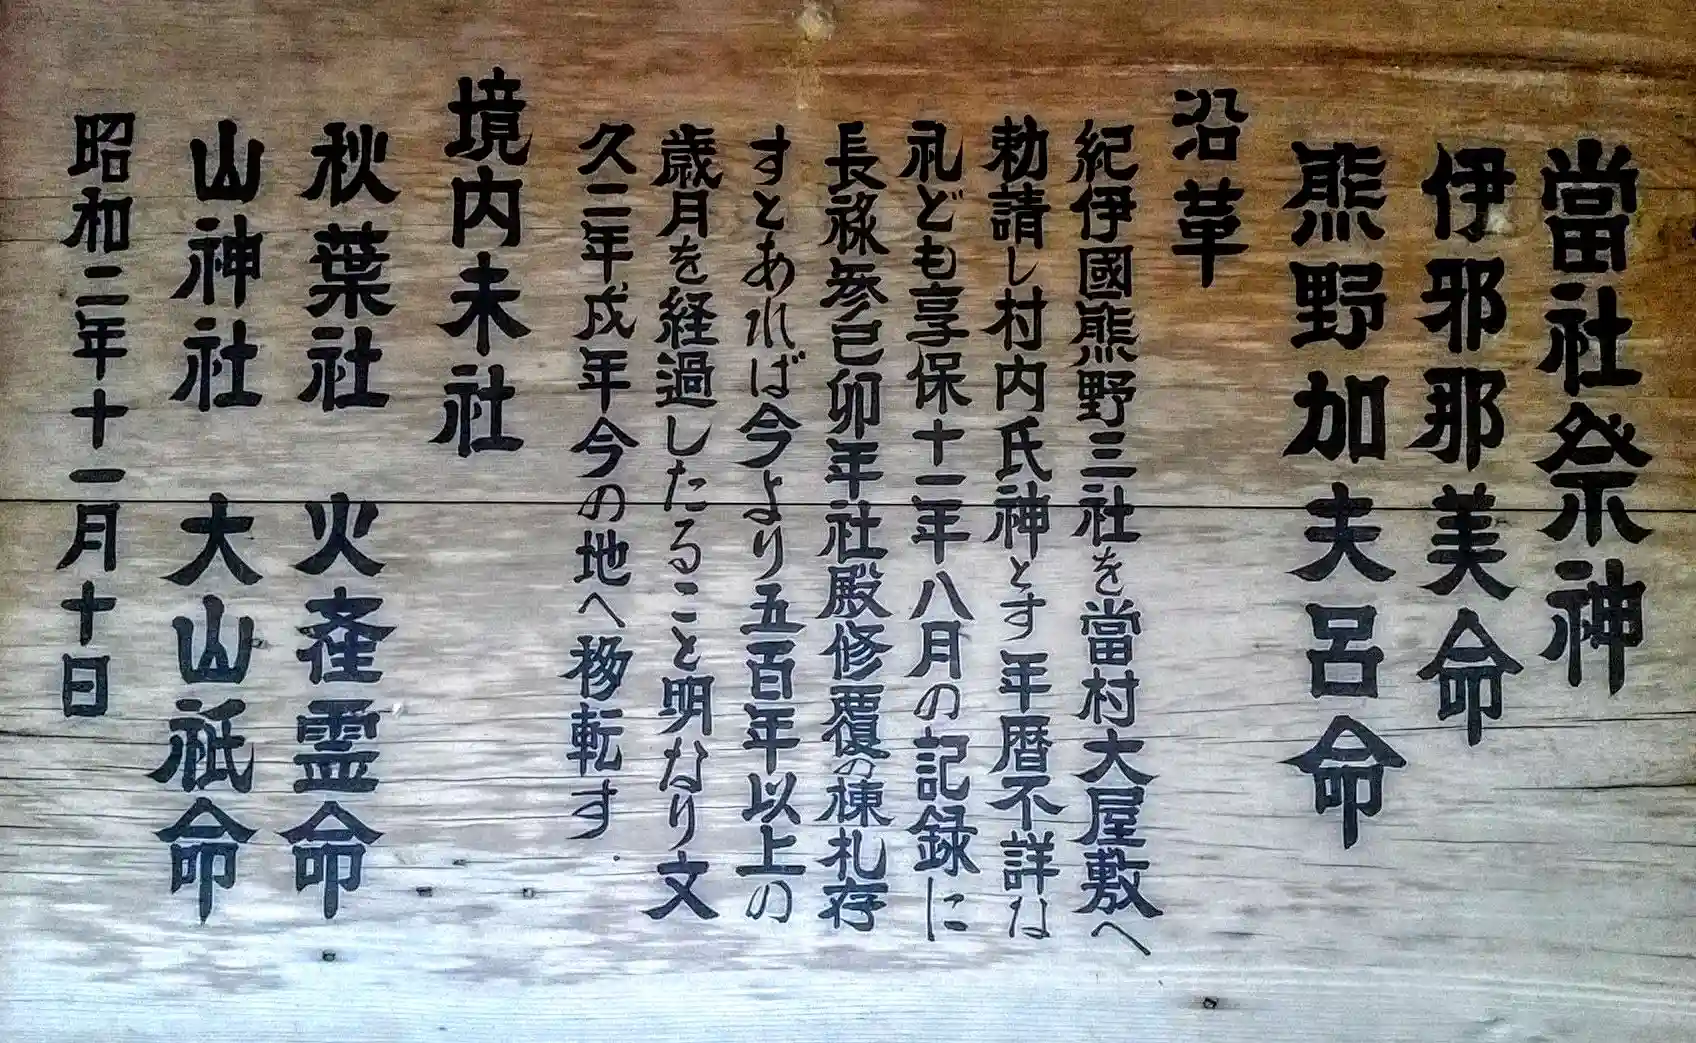 當社祭神
伊邪那美命
熊野加夫呂命
沿革
紀伊國熊野三社を當村大屋敷へ
勅請し村内氏神とす年暦不詳な
礼ども享保十一年八月の記録に
長祿参己卯年社殿修覆の棟札存
すとあれば今より五百年以上の
歳月を経過したること明なり文
久二年戌年今の地へ移転す
境内末社
秋葉社 火産霊命
山神社 大山祇命
昭和二年十一月十日